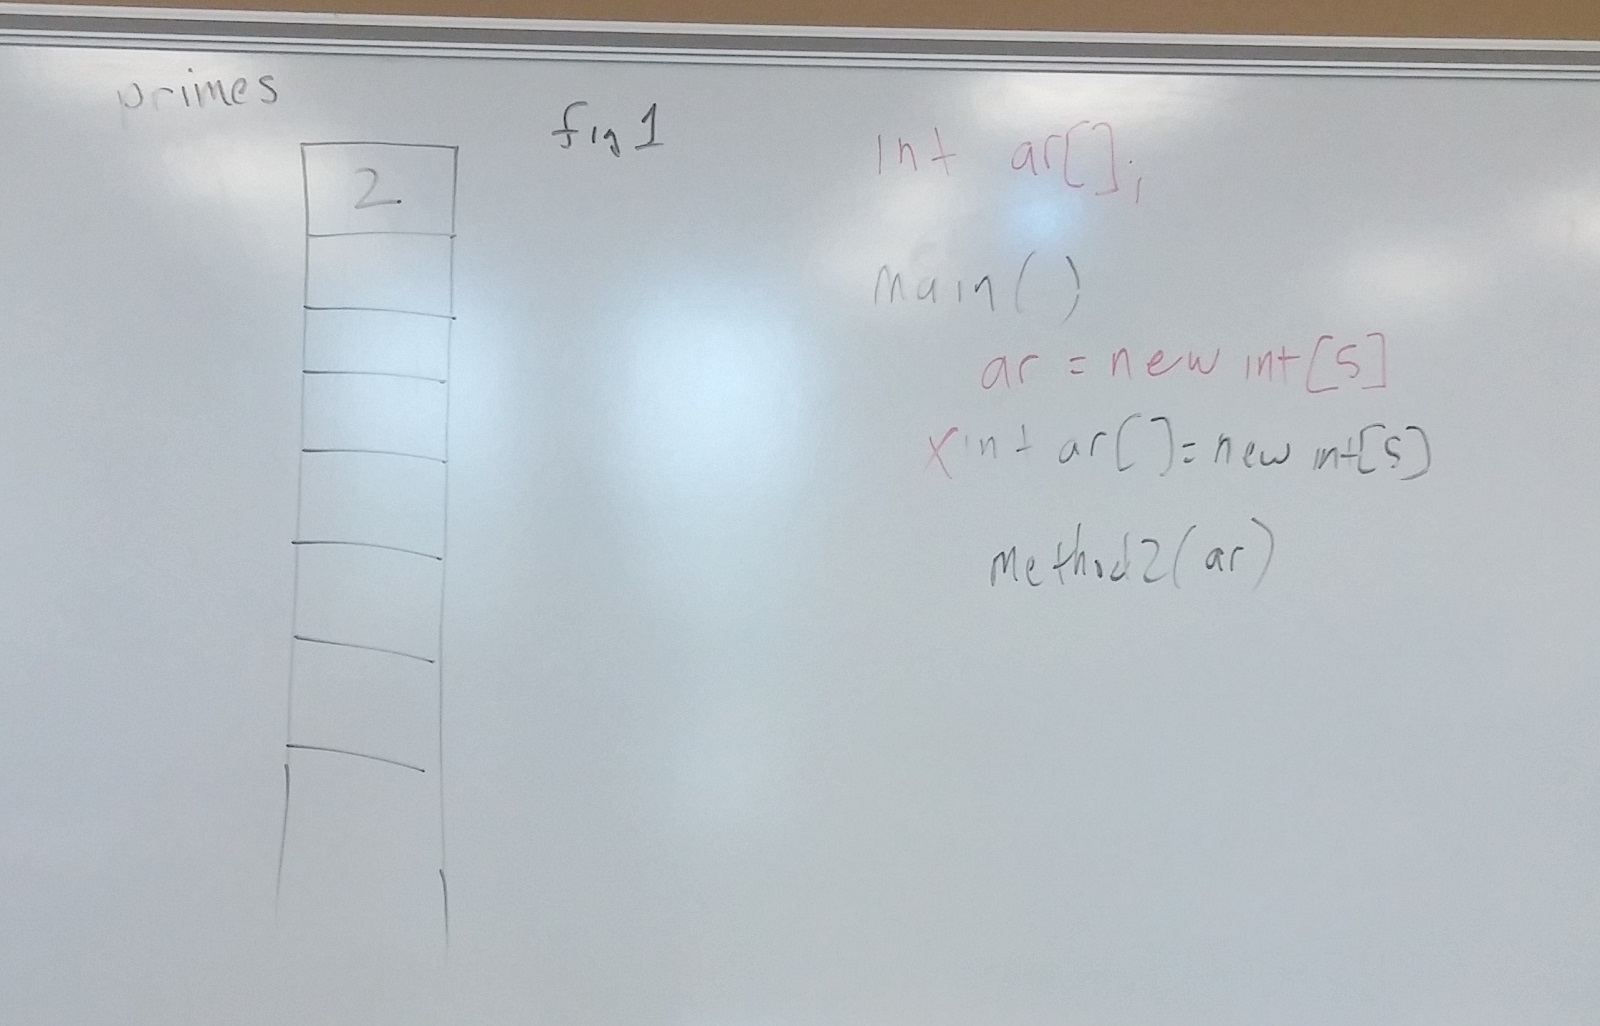 primes
fig 1
2
int ar[];
main()
ar = new int[5]
x int ar[] = new int[5]
method2(ar)